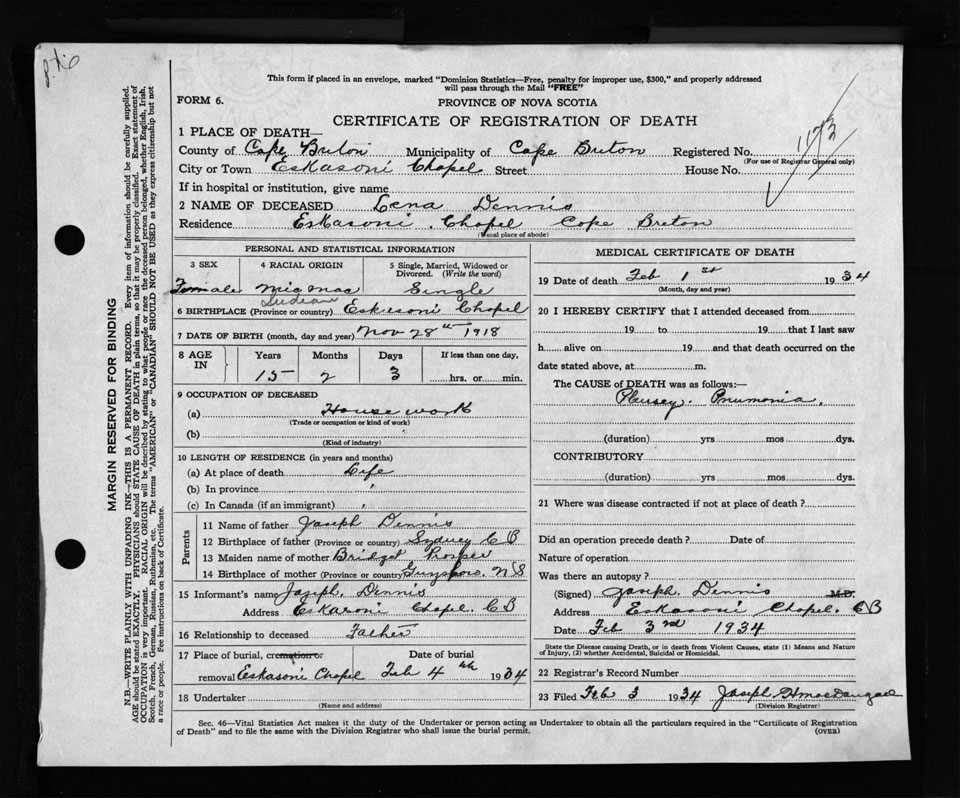 P.t.6
This form if placed in an envelope, marked "Dominion Statistics—Free, penalty for improper use, $300," and properly addressed
will pass through the Mail "FREE"
FORM 6.
PROVINCE OF NOVA SCOTIA
CERTIFICATE OF REGISTRATION OF DEATH
1173
1 PLACE OF DEATH—
County of Cape Breton Municipality of Cape Breton Registered No.
(For use of Registrar General only)
City or Town Eskasoni Chapel Street House No.
If in hospital or institution, give name
2 NAME OF DECEASED Lena Dennis
Residence Eskasoni Chapel Cape Breton
(Usual place of abode)
PERSONAL AND STATISTICAL INFORMATION
3 SEX 4 RACIAL ORIGIN 5 Single, Married, Widowed or
Divorced. (Write the word)
Female Micmac Single
Indian
6 BIRTHPLACE (Province or country) Eskasoni Chapel
7 DATE OF BIRTH (month, day and year) Nov 28th 1918
8 AGE IN Years Months Days If less than one day,
15 2 3 hrs. or min.
9 OCCUPATION OF DECEASED
(a) House work
(Trade or occupation or kind of work)
(b) "
(Kind of industry)
10 LENGTH OF RESIDENCE (in years and months)
(a) At place of death Life
(b) In province "
(c) In Canada (if an immigrant) "
Parents
11 Name of father Joseph Dennis
12 Birthplace of father (Province or country) Sydney C B
13 Maiden name of mother Bridget Prosper
14 Birthplace of mother (Province or country) Guysboro. N S
15 Informant's name Joseph. Dennis
Address Eskasoni Chapel. C B
16 Relationship to deceased Father
17 Place of burial, cremation or Date of burial
removal Eskasoni Chapel Feb 4th 1934
18 Undertaker
(Name and address)
MEDICAL CERTIFICATE OF DEATH
19 Date of death Feb 1st 1934
(Month, day and year)
20 I HEREBY CERTIFY that I attended deceased from
19 to 19 that I last saw
h alive on 19 and that death occurred on the
date stated above, at m.
The CAUSE OF DEATH was as follows:—
Plursey. Pnumonia,
(duration) yrs mos dys.
CONTRIBUTORY
(duration) yrs mos dys.
21 Where was disease contracted if not at place of death?
Did an operation precede death? Date of
Nature of operation
Was there an autopsy?
(Signed) Joseph. Dennis M.D.
Address Eskasoni Chapel. C B
Date Feb 3rd 1934
State the Disease causing Death, or in death from Violent Causes, state (1) Means and Nature
of Injury, (2) whether Accidental, Suicidal or Homicidal.
22 Registrar's Record Number
23 Filed Feb 3 1934 Joseph H MacDougall
(Division Registrar)
Sec. 46—Vital Statistics Act makes it the duty of the Undertaker or person acting as Undertaker to obtain all the particulars required in the "Certificate of Registration
of Death" and to file the same with the Division Registrar who shall issue the burial permit.
(OVER)
MARGIN RESERVED FOR BINDING
N.B.—WRITE PLAINLY WITH UNFADING INK—THIS IS A PERMANENT RECORD. Every item of information should be carefully supplied.
AGE should be stated EXACTLY. PHYSICIANS should STATE CAUSE OF DEATH in plain terms, so that it may be properly classified. Exact statement of
OCCUPATION is very important. RACIAL ORIGIN will be described by stating to what people or race the deceased person belonged, whether English, Irish,
Scotch, French, German, Russian, Ruthenian, etc. The terms "AMERICAN" or "CANADIAN" SHOULD NOT BE USED as they express citizenship but not
a race or people. See instructions on back of Certificate.